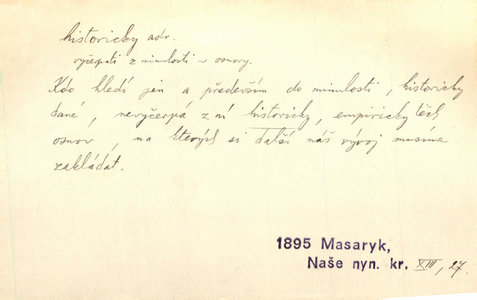 historicky adv.
vyčerpati z minulosti – osnovy.
Kdo hledí jen a především do minulosti, historicky
dané, nevyčerpá z ní historicky, empiricky těch
osnov, na kterých si další náš vývoj musíme
zakládat.
1895 Masaryk,
Naše nyn. kr. XIII, 27.